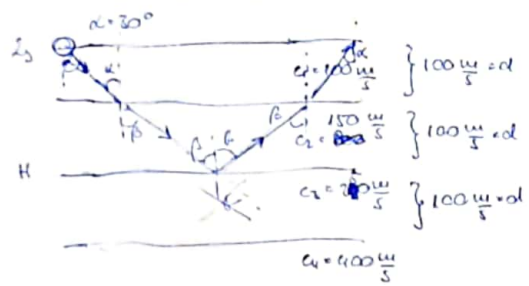 α=30°
α
α
c₁=100 m/s } 100 m/s = d
β
β
β
β
150 m/s
c₂= } 100 m/s = d
H
c₃= m/s } 100 m/s = d
c₄=400 m/s